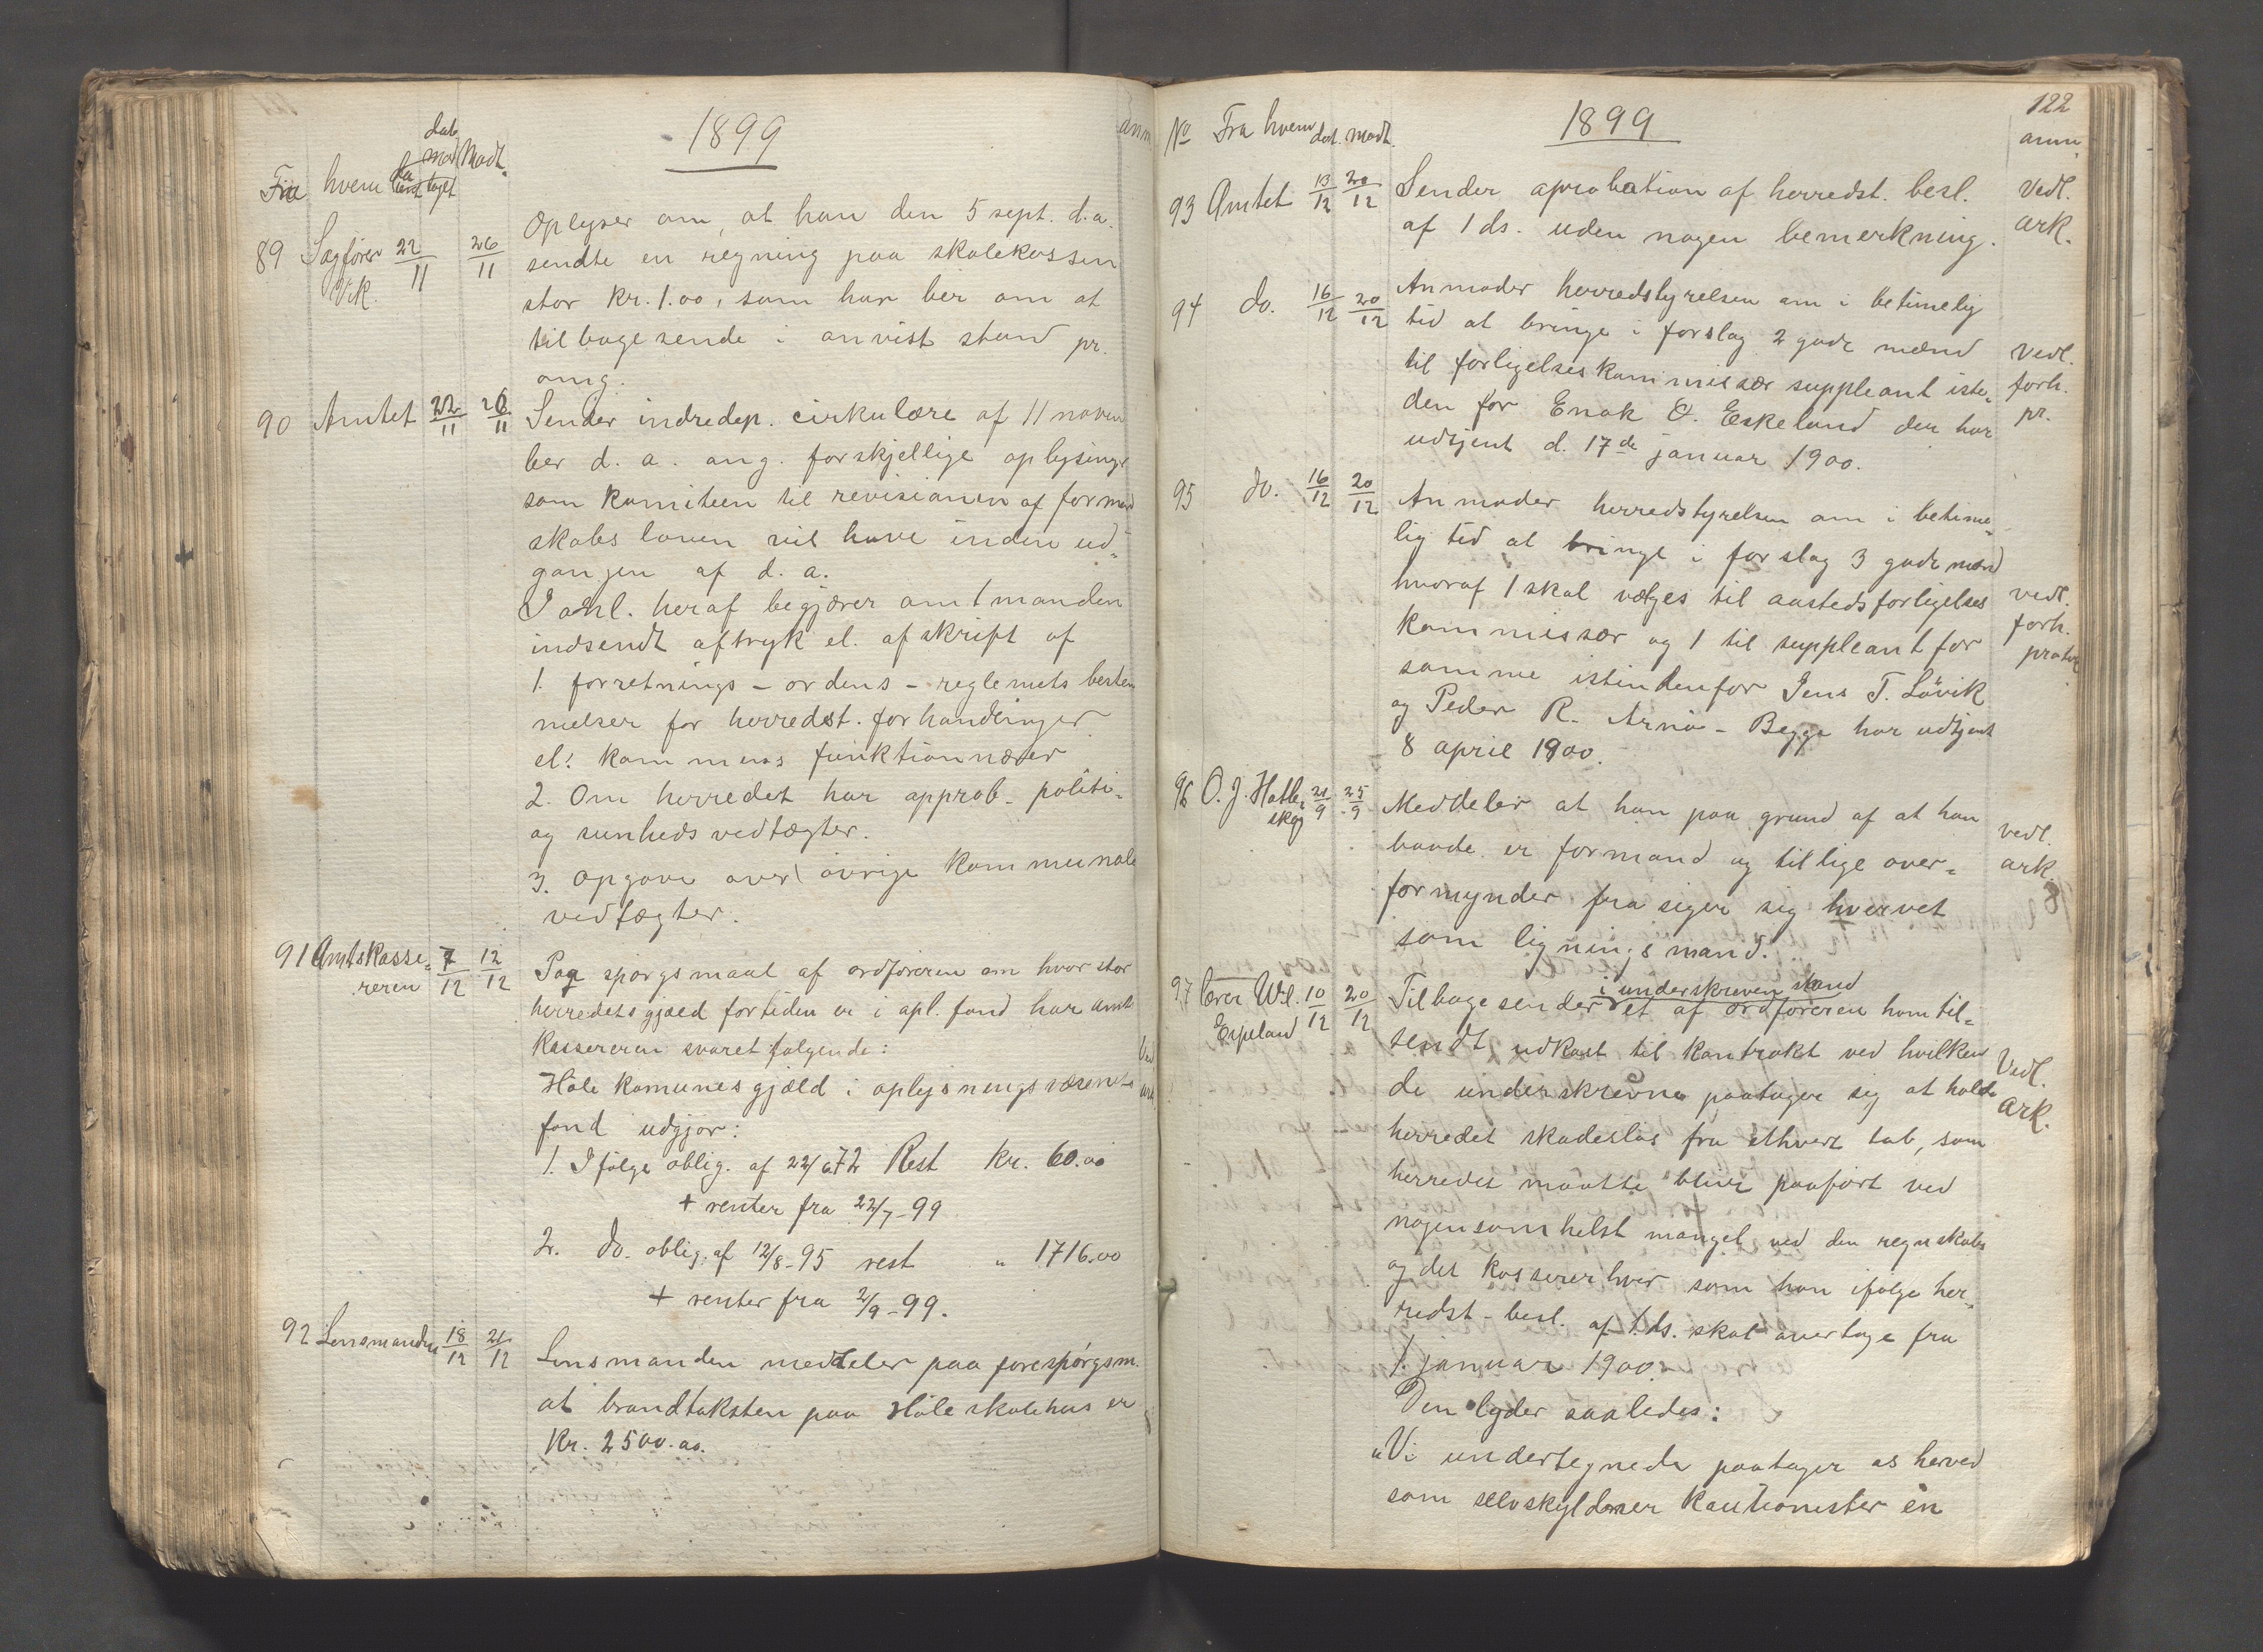 1899
anm
Fra hvem dat. Modt.
89 Sagfører Vik. 22/11 26/11 Oplyser om, at han den 5 sept. d.a.
sendte en regning paa skolekassen
stor kr. 1.00, som han ber om at
tilbagesende i anvist stand pr.
omg.
90 Amtet 22/11 26/11 Sender indredep. cirkulære af 11 novem
ber d. a. ang. forskjellige oplysinger
som komiteen til revisionen af formand
skabsloven vil have inden ud-
gangen af d. a.
I anl. heraf begjærer amtmanden
indsendt aftryk el. afskrift af
1. forretnings-ordens-reglemets bestem
melser for herredst. forhandlinger
el. kommunens funktionnærer
2. Om herredet har approb. politi-
og sunhedsvedtægter.
3. Opgave over øvrige kommunale
vedtægter.
91 Amtskasse-
reren 7/12 12/12 Paa spørgsmaal af ordføreren om hvor stor
herredets gjæld fortiden er i opl. fond har amt
kassereren svaret følgende:
Høle komunes gjæld i oplysningsvæsenets
fond udgjør:
1. Ifølge oblig. af 22/6 72 Rest Kr. 60.00
+ renter fra 22/7-99
2. do. oblig. af 12/8-95 rest " 1716.00
+ renter fra 2/9-99.
92 Lensmanden 18/12 21/12 Lensmanden meddeler paa forespørgsm.
at brandtaksten paa Høle skolehus er
Kr. 2500.00.
122
No Fra hvem dat. modt. 1899 anm.
93 Amtet 13/12 20/12 Sender aprobation af herredst. besl. Vedl.
af 1 ds. uden nogen bemerkning. ark.
94 do. 16/12 20/12 Anmoder herredstyrelsen om i betimelig
tid at bringe i forslag 2 gode mænd Vedl.
til forligelseskommissær suppleant iste- forh.
den for Enok O. Eskeland der har pr.
udtjent d. 17de januar 1900.
95 do. 16/12 20/12 Anmoder herredstyrelsen om i betime-
lig tid at bringe i forslag 3 gode mænd
hvoraf 1 skal vælges til aastedsforligelses vedl.
kommissær og 1 til suppleant for forh.
samme istedenfor Jens T. Løvik protok
og Peder R. Arnø - Begge har udtjent
8 april 1900.
96 O. J. Hatle-
skog 21/9 25/9 Meddeler at han paa grund af at han vedl.
baade er formand og tillige over- ark.
formynder frasiger sig hvervet
som ligningsmand.
97 lærer Wil.
Espeland 10/12 20/12 Tilbagesender i underskreven stand et af ordføreren ham til-
sendt udkast til kontrakt ved hvilken Vedl.
de underskrevne paatager sig at holde ark.
herredet skadesløs fra ethvert tab, som
herredet maatte blive paaført ved
nogensomhelst mangel ved den regnskabs
og det kassererhver som han ifølge her-
redst-besl. af 1 ds. skal overtage fra
1. januar 1900.
Den lyder saaledes:
"Vi undertegnede paatager os herved
som selvskyldnere kautionister en